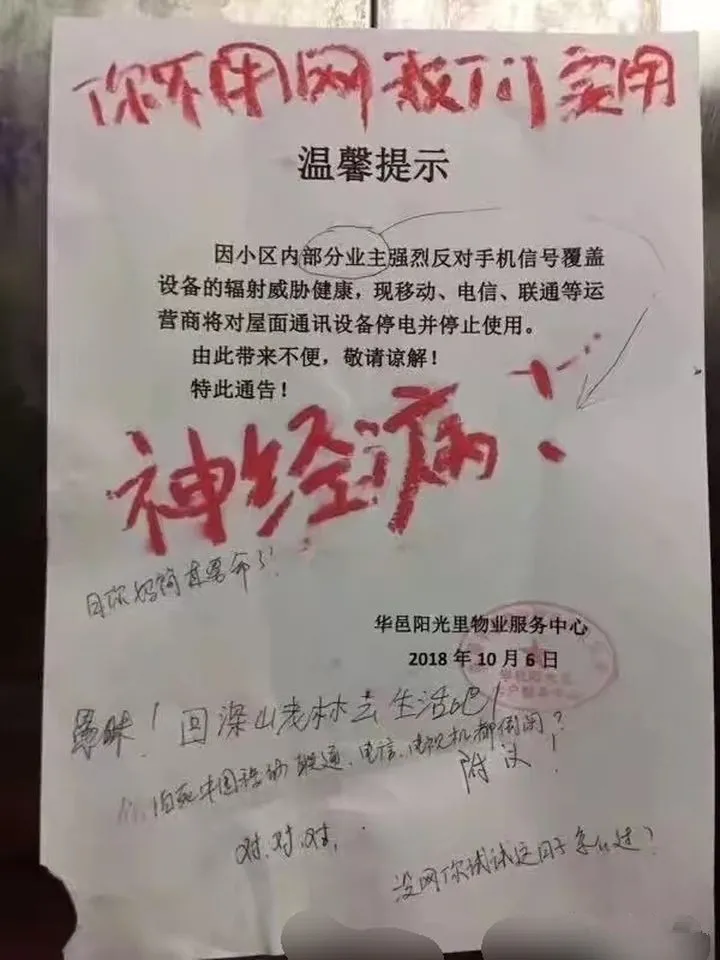 你不用网我们实用
温馨提示
因小区内部分业主强烈反对手机信号覆盖
设备的辐射威胁健康，现移动、电信、联通等运
营商将对屋面通讯设备停电并停止使用。
由此带来不便，敬请谅解！
特此通告！
神经病！
华邑阳光里物业服务中心
2018年10月6日
愚昧！回深山老林去生活吧！
联通、电信、电视机都倒闭？
附议！
对、对、对、
没网你试试这日子怎么过？